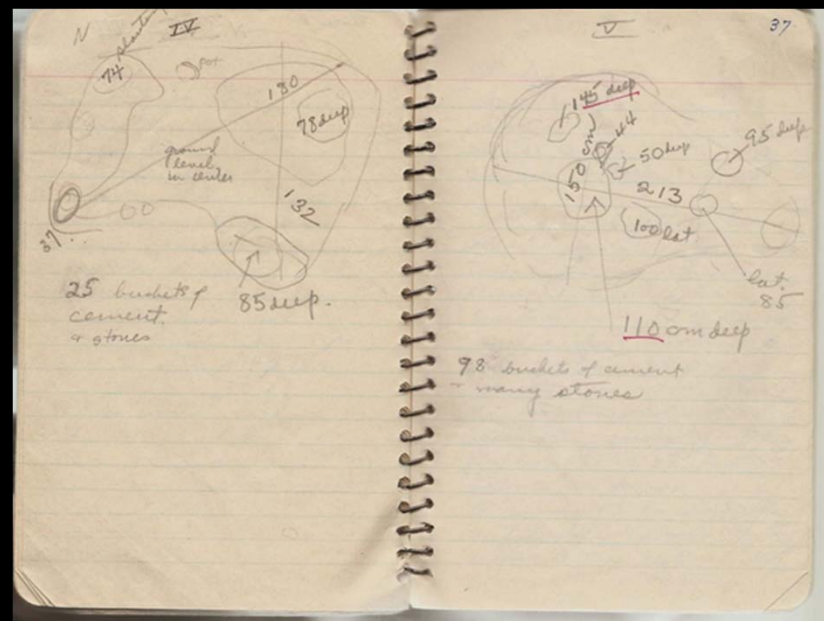 N
IV
74
pot
180
78 deep
ground
level
in center
132
37
85 deep.
25 buckets of
cement
& stones
37
V
145 deep
44
150 cm
50 deep
95 deep
213
100 lat
lat.
85
110 cm deep
98 buckets of cement
many stones